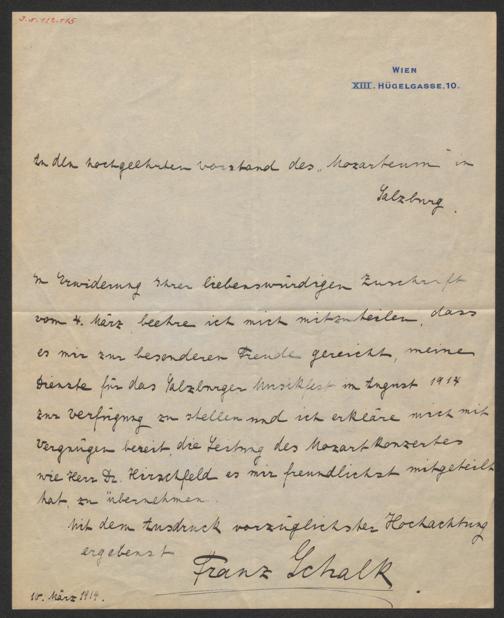 WIEN
XIII. HÜGELGASSE.10.
An den hochgeehrten Vorstand des „Mozarteum" in
Salzburg.
In Erwiderung Ihrer liebenswürdigen Zuschrift
vom 4. März, beehre ich mich mitzuteilen, dass
es mir zur besonderen Freude gereicht, meine
Dienste für das Salzburger Musikfest im August 1914
zur Verfügung zu stellen und ich erkläre mich mit
Vergnügen bereit, die Leitung des Mozartkonzertes
wie Herr Dr. Hirschfeld es mir freundlichst mitgeteilt
hat, zu übernehmen.
Mit dem Ausdruck vorzüglichster Hochachtung
ergebenst
Franz Schalk
März 1914.